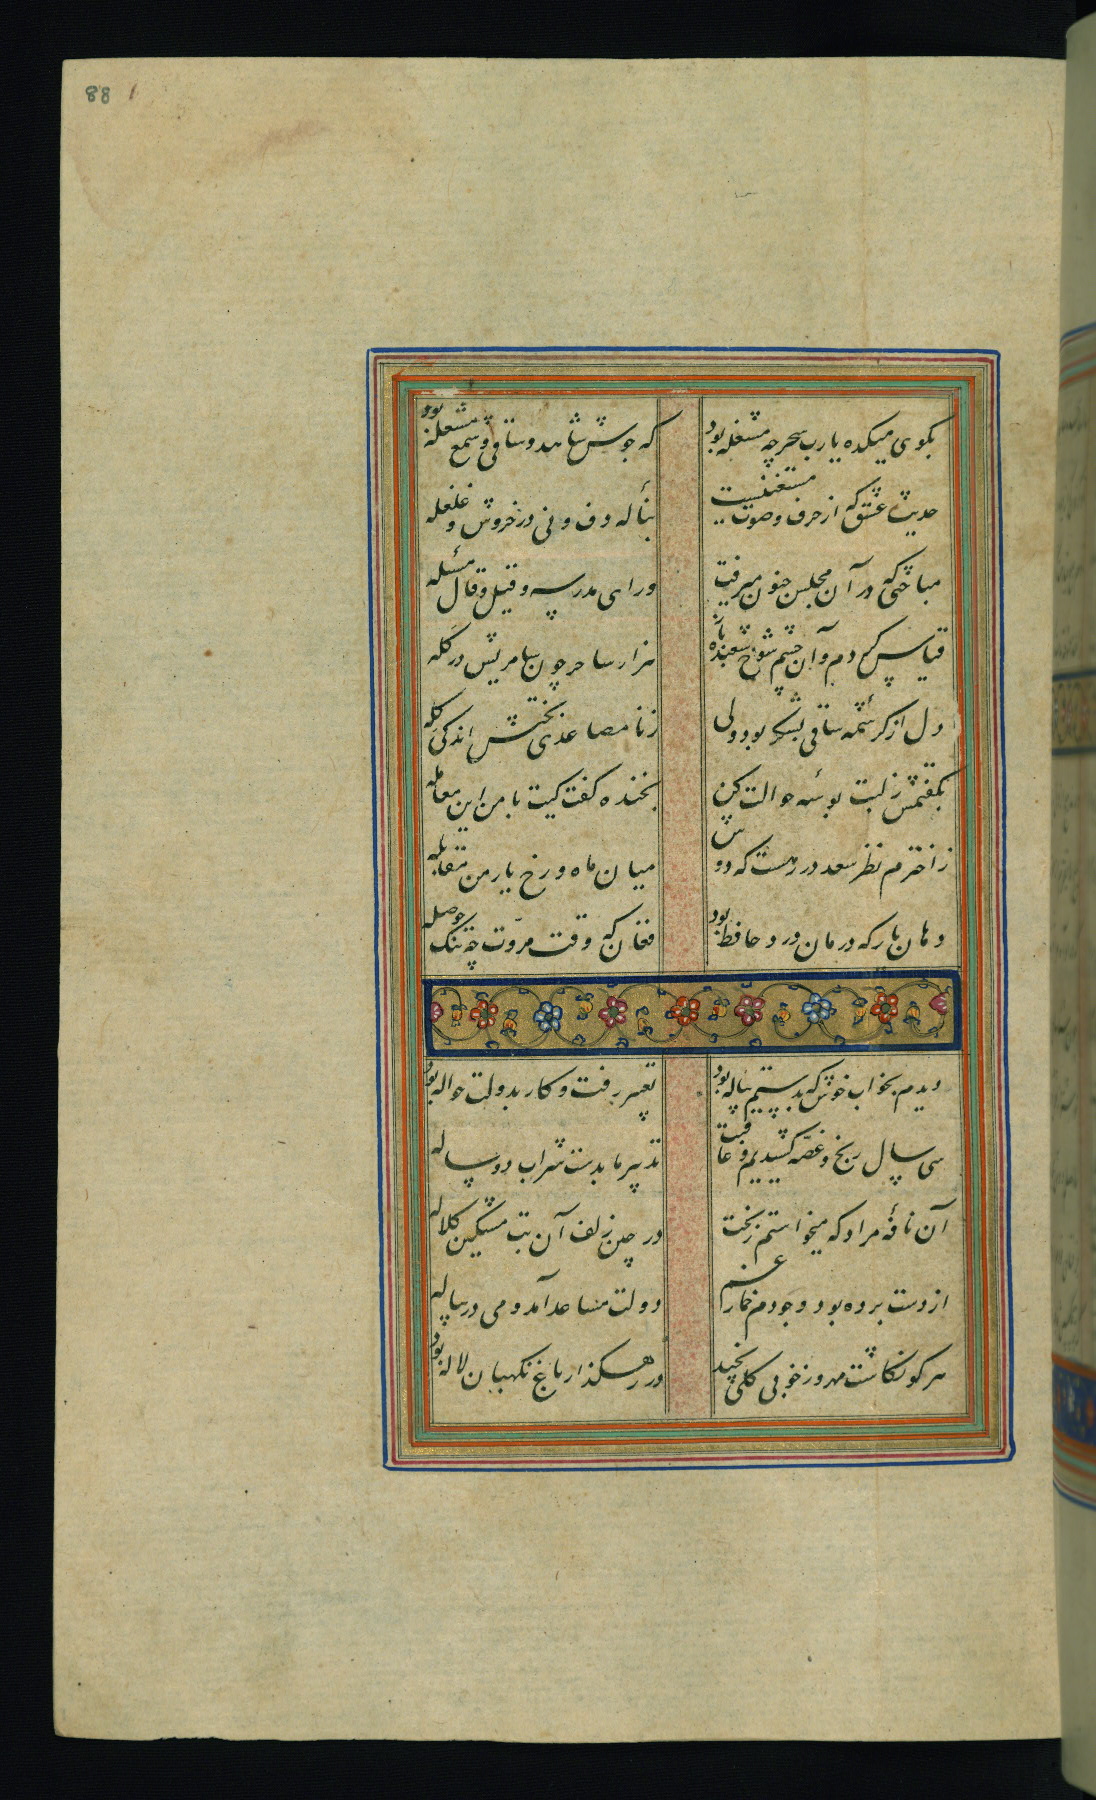 88
بکوی میکده یارب سحر چه مشغله بود که جوش شاهد و ساقی و شمع مشعله بود
حدیث عشق که از حرف و صوت مستغنیست بنالهٔ دف و نی در خروش و غلغله
مباحثی که در آن مجلس جنون میرفت ورای مدرسه و قیل و قال مسئله
قیاس کردم و آن چشم شوخ شعبده باز هزار ساحر چون سامریش در کله
دل از کرشمه ساقی بشکر بود ولی ز نامساعدی بختش اندکی کله
بکفتمش ز لبت بوسهٔ حوالت کن بخنده کفت کیت با من این معامله
ز اخترم نظر سعد در رهست که دوش میان ماه و رخ یار من مقابله
دهان یار که درمان درد حافظ بود فغان که وقت مروّت چه تنک حوصله
دیدم بخواب خوش که بدستم پیاله بود تعبیر رفت و کار بدولت حواله بود
سی سال رنج و غصّه کشیدیم و عاقبت تدبیر ما بدست شراب دو ساله
آن نافهٔ مراد که میخواستم ز بخت در چین زلف آن بت مشکین کلاله
از دست برده بود وجودم خمار غم دولت مساعد آمد و می در پیاله
هر کو نکاشت مهر و ز خوبی کلی نچید در رهکذار باغ نکهبان لاله بود